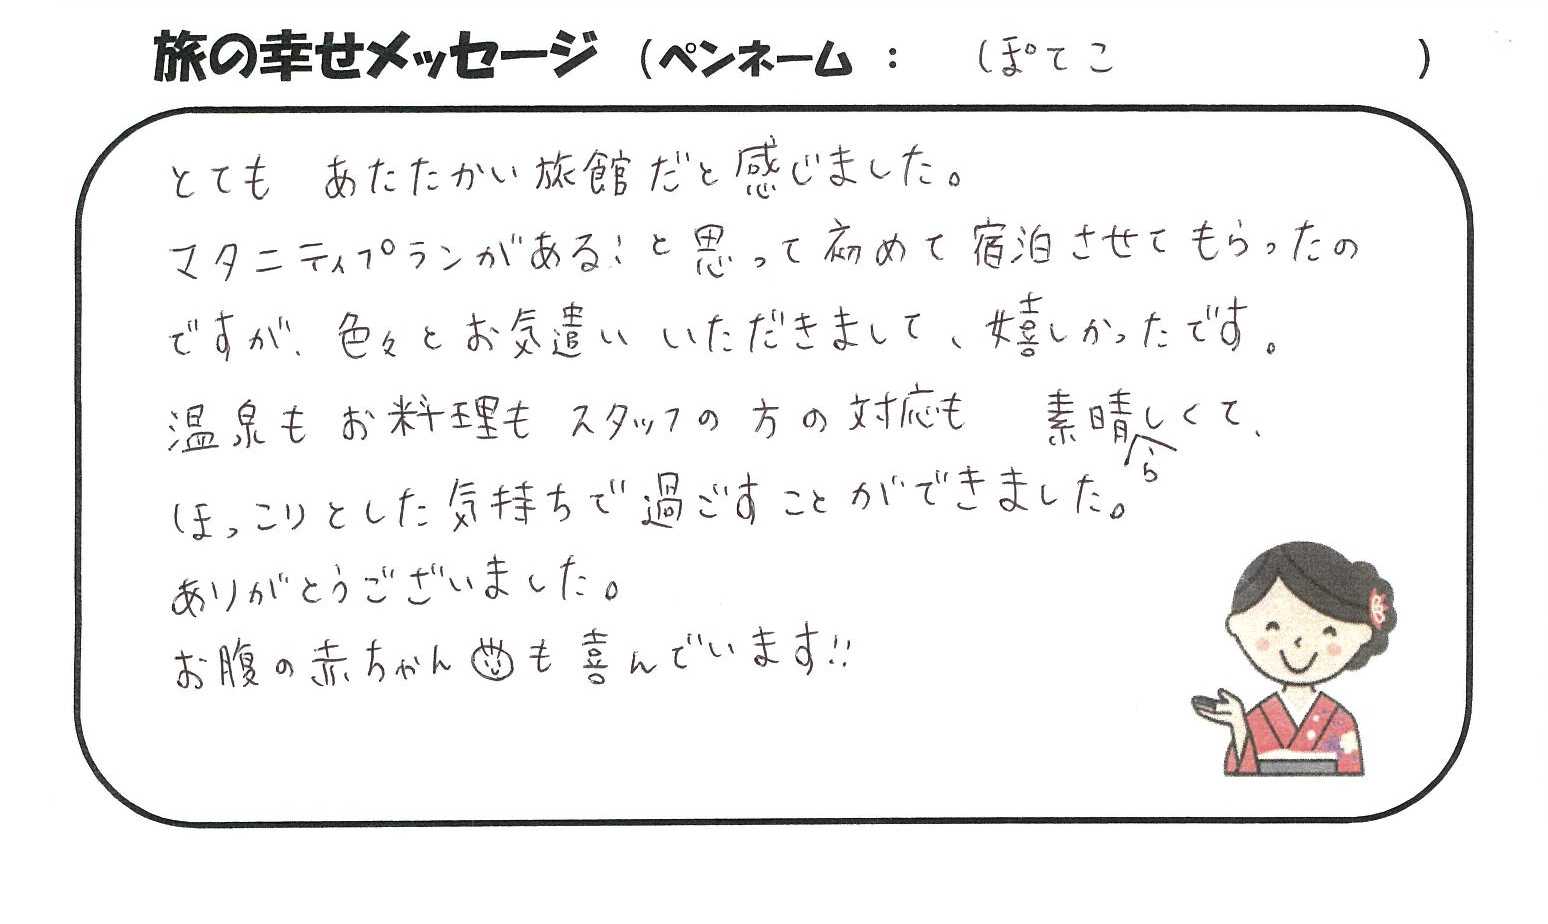 旅の幸せメッセージ （ペンネーム ： ぽてこ ）
とても あたたかい旅館だと感じました。
マタニティプランがある！と思って初めて宿泊させてもらったの
ですが、色々とお気遣いいただきまして、嬉しかったです。
温泉もお料理もスタッフの方の対応も 素晴らしくて、
ほっこりとした気持ちで過ごすことができました。
ありがとうございました。
お腹の赤ちゃんも喜んでいます!!